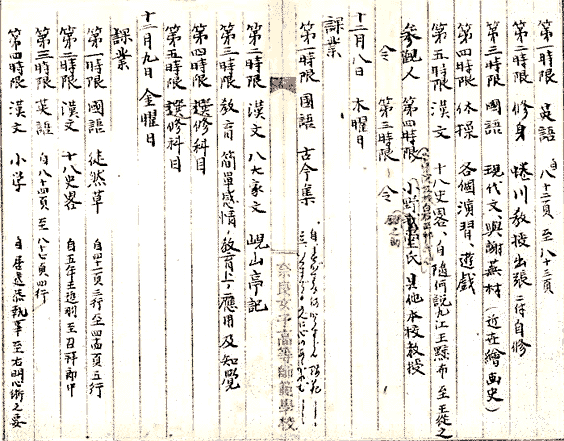 第一時限 英語 自八十二頁至八十三頁
第二時限 修身 蜷川教授出張ニ付自修
第三時限 國語 現代文、與謝蕪村(近在繪画史)
第四時限 体操 各個演習、遊戯
第五時限 漢文 十八史畧、自隨何説九江王黥布至王從之
参観人 第四時限 小野 氏 其他本校教授
仝 第五時限 仝
十二月八日 木曜日
課業
第一時限 國語 古今集
第二時限 漢文 八大家文 峴山亭記
第三時限 教育 簡單感情 教育上ノ應用及知覺
第四時限 選修科目
第五時限 選修科目
十二月九日 金曜日
課業
第一時限 國語 徒然草 自四二頁三行至四四頁五行
第二時限 漢文 十八史畧
第三時限 英語 自八十四頁至八十七頁四行
第四時限 漢文 小学
奈良女子高等師範學校